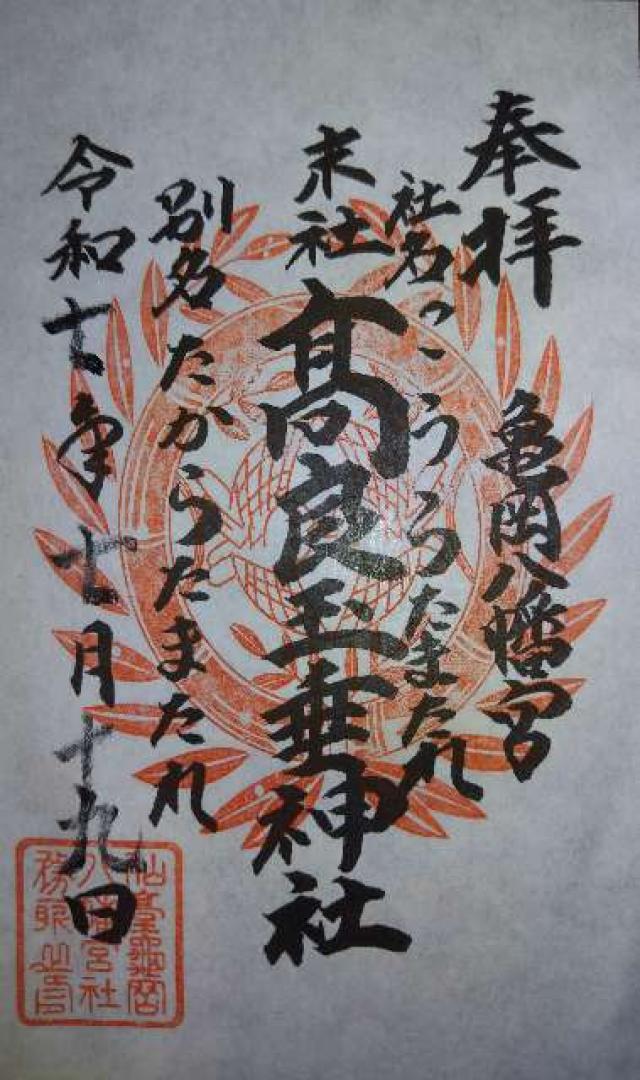 奉拝
亀岡八幡宮
社名 こうらたまたれ
末社 高良玉垂神社
別名 たからたまたれ
令和 年 月十九日
仙臺龜岡
八幡宮社
務所之印